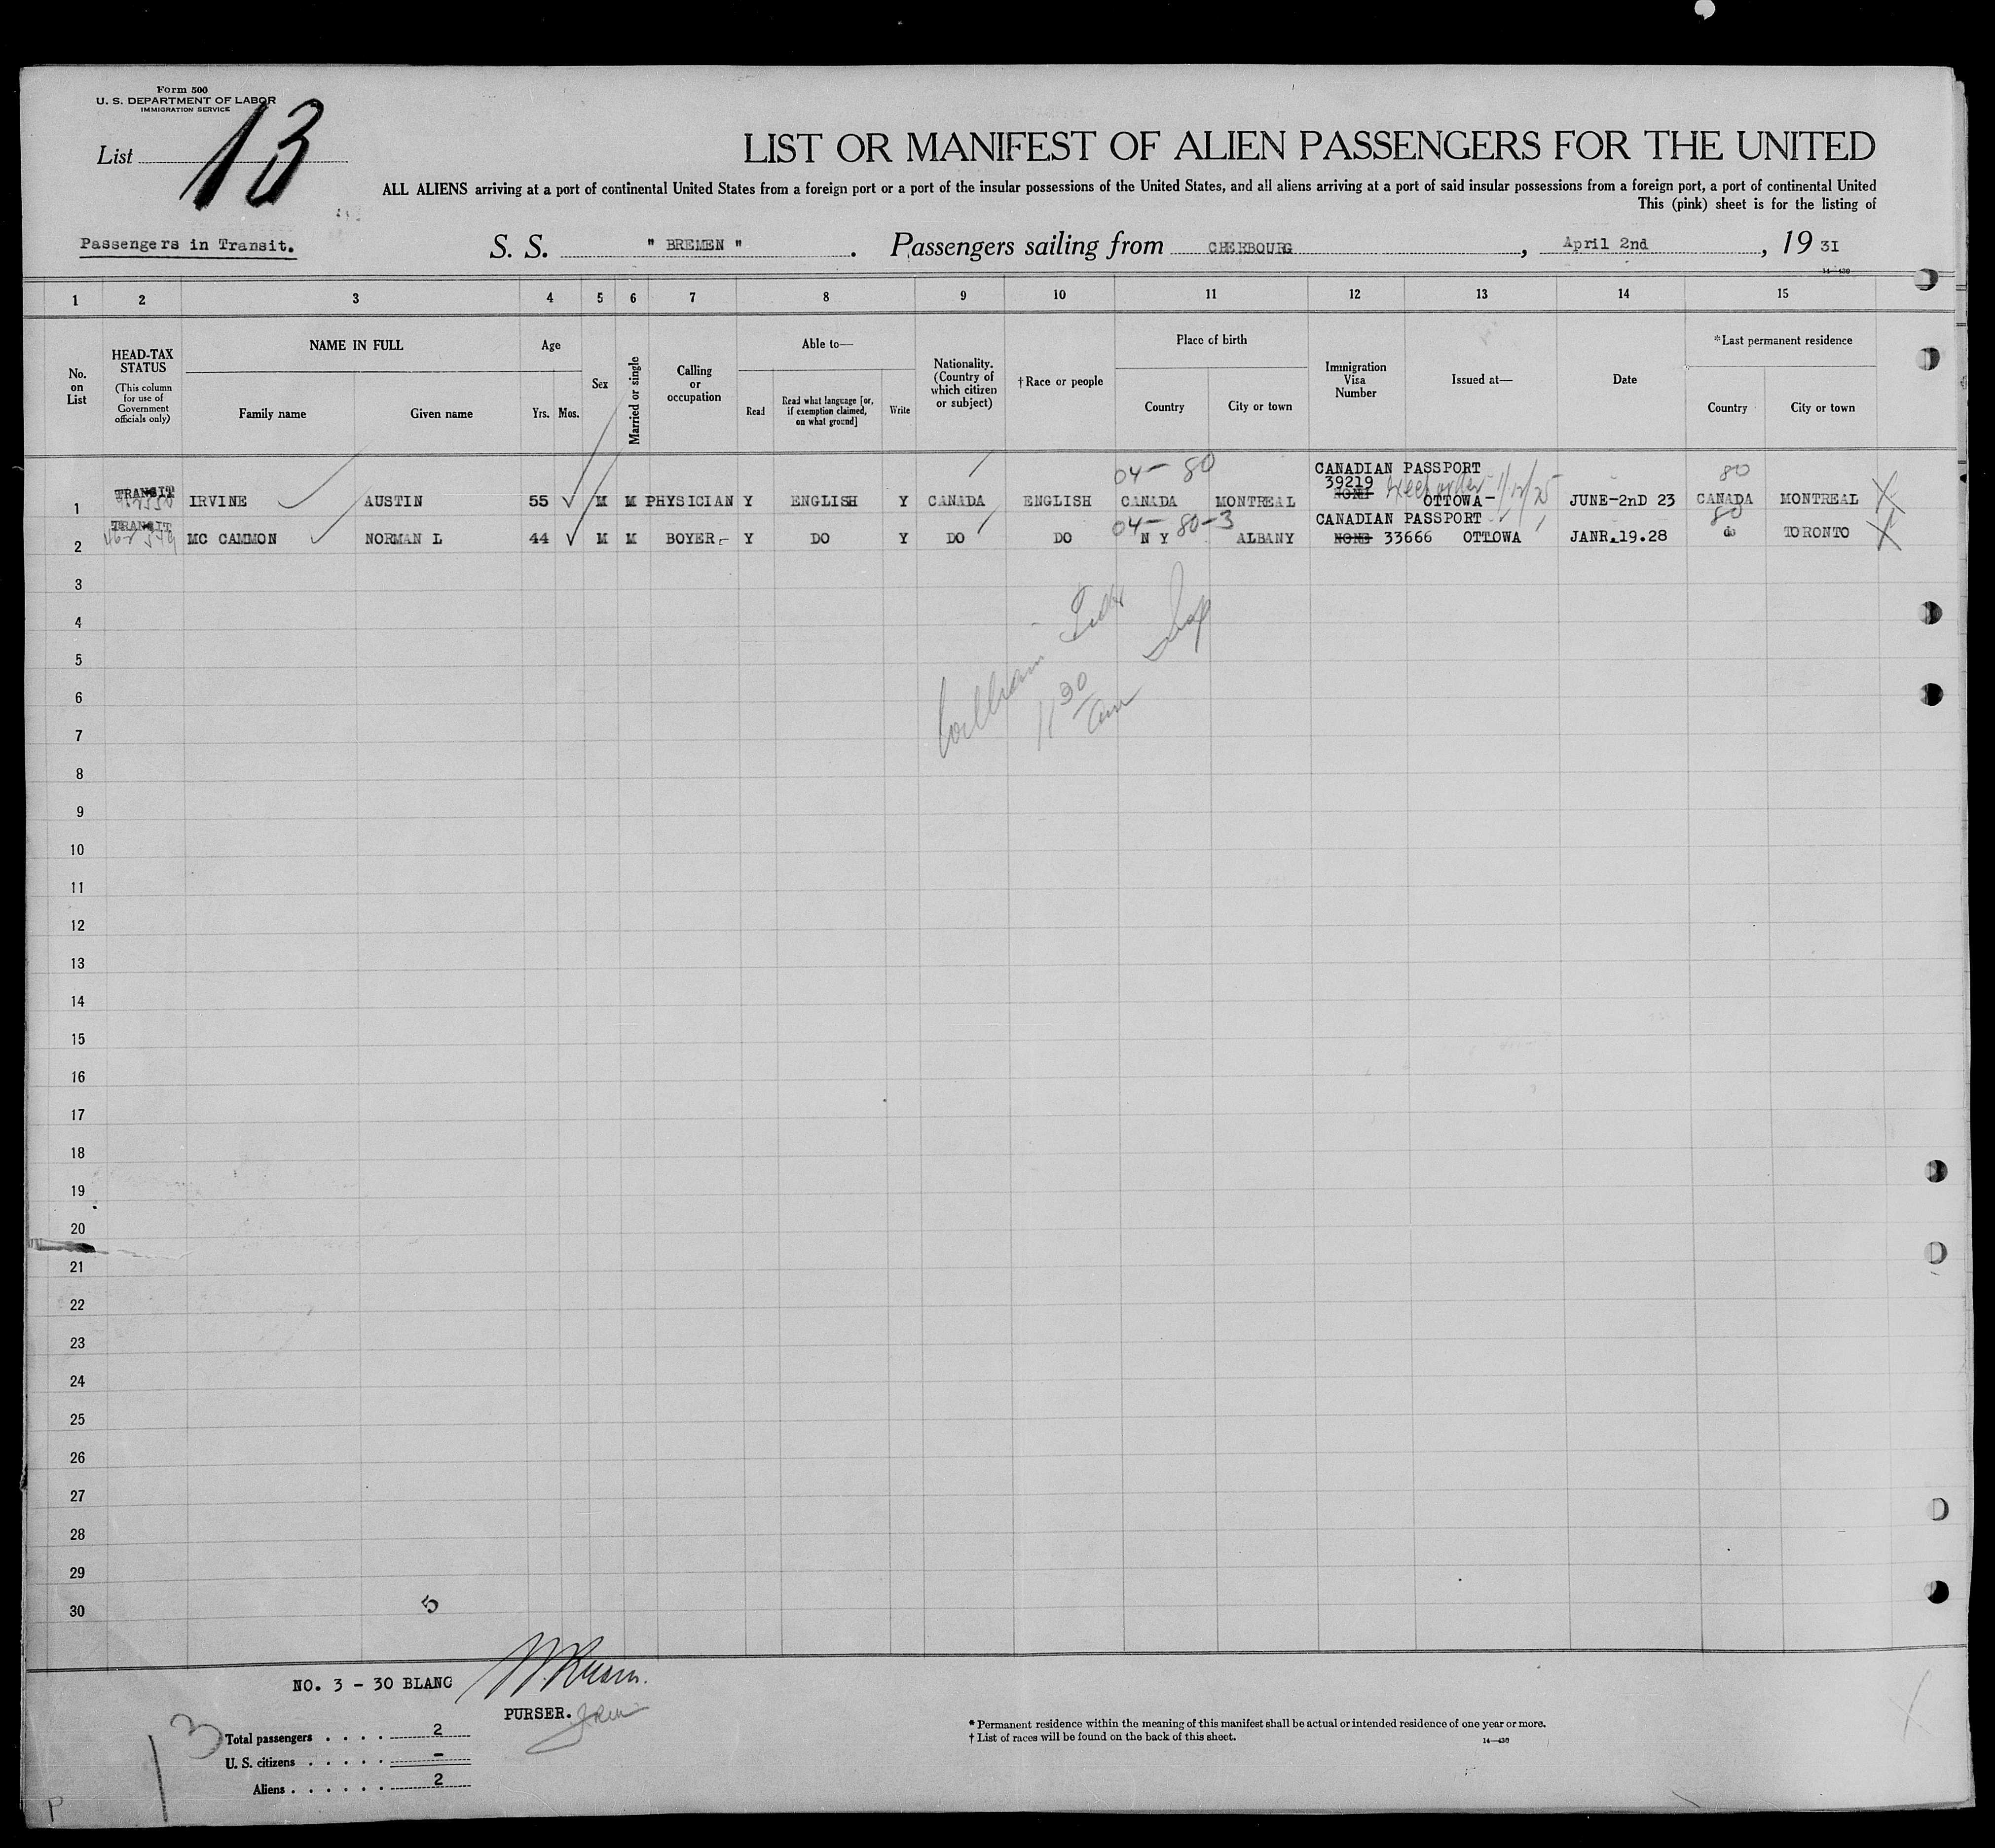 Form 500
U. S. DEPARTMENT OF LABOR
IMMIGRATION SERVICE
List 13
LIST OR MANIFEST OF ALIEN PASSENGERS FOR THE UNITED
ALL ALIENS arriving at a port of continental United States from a foreign port or a port of the insular possessions of the United States, and all aliens arriving at a port of said insular possessions from a foreign port, a port of continental United
This (pink) sheet is for the listing of
Passengers in Transit. S. S. " BREMEN ". Passengers sailing from CHERBOURG, April 2nd, 19 31
14—430
1 2 3 4 5 6 7 8 9 10 11 12 13 14 15
No. on List
HEAD-TAX STATUS (This column for use of Government officials only)
NAME IN FULL
Family name Given name
Age
Yrs. Mos.
Sex
Married or single
Calling or occupation
Able to—
Read
Read what language [or, if exemption claimed, on what ground]
Write
Nationality. (Country of which citizen or subject)
†Race or people
Place of birth
Country City or town
Immigration Visa Number
Issued at—
Date
*Last permanent residence
Country City or town
04- 80 CANADIAN PASSPORT 80
39219
1 TRANSIT IRVINE AUSTIN 55 ✓ M M PHYSICIAN Y ENGLISH Y CANADA ENGLISH CANADA MONTREAL NONE OTTOWA- 1/12/25 JUNE-2nD 23 CANADA MONTREAL X
04- 80-3 CANADIAN PASSPORT 80
2 TRANSIT MC CAMMON NORMAN L 44 ✓ M M BOYER Y DO Y DO DO N Y ALBANY NONE 33666 OTTOWA JANR.19.28 do TORONTO X
3
4
5
6
7
8
9
10
11
12
13
14
15
16
17
18
19
20
21
22
23
24
25
26
27
28
29
30
William
11 30 am
5
NO. 3 - 30 BLANC
PURSER.
13
Total passengers . . . . 2
U. S. citizens . . . . . -
Aliens . . . . . . 2
P
* Permanent residence within the meaning of this manifest shall be actual or intended residence of one year or more.
† List of races will be found on the back of this sheet.
14—430